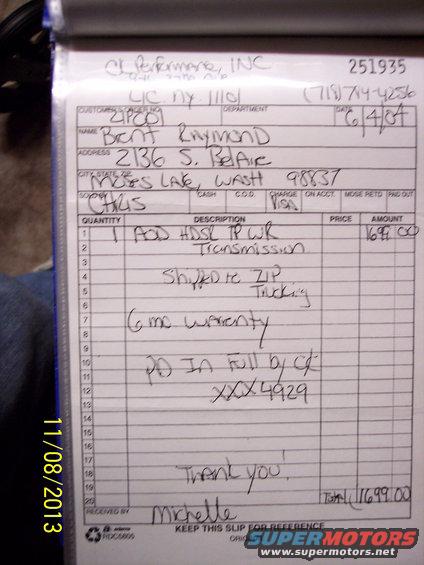 CK Performance, INC 251935
LIC. NY. 11101 (718) 794-4256
CUSTOMER'S ORDER NO. DEPARTMENT DATE
6/4/04
NAME Brent Raymond
ADDRESS 2136 S. BelAir
CITY, STATE, ZIP Moses Lake, WASH 98837
SOLD BY CHRIS CASH C.O.D. CHARGE VISA ON ACCT. MDSE RETD PAID OUT
QUANTITY DESCRIPTION PRICE AMOUNT
1 1 AOD HDSL TP WR 1699 00
2 Transmission
3
4 Shipped to ZIP
5 Trucking
6
7 6 mo warranty
8
9
10 PD In Full by CK
11
12 XXX4929
13
14
15
16
17
18 Thank You!
19
20 Total 1699.00
RECEIVED BY Michelle
KEEP THIS SLIP FOR REFERENCE
11/08/2013
SUPERMOTORS
www.supermotors.net